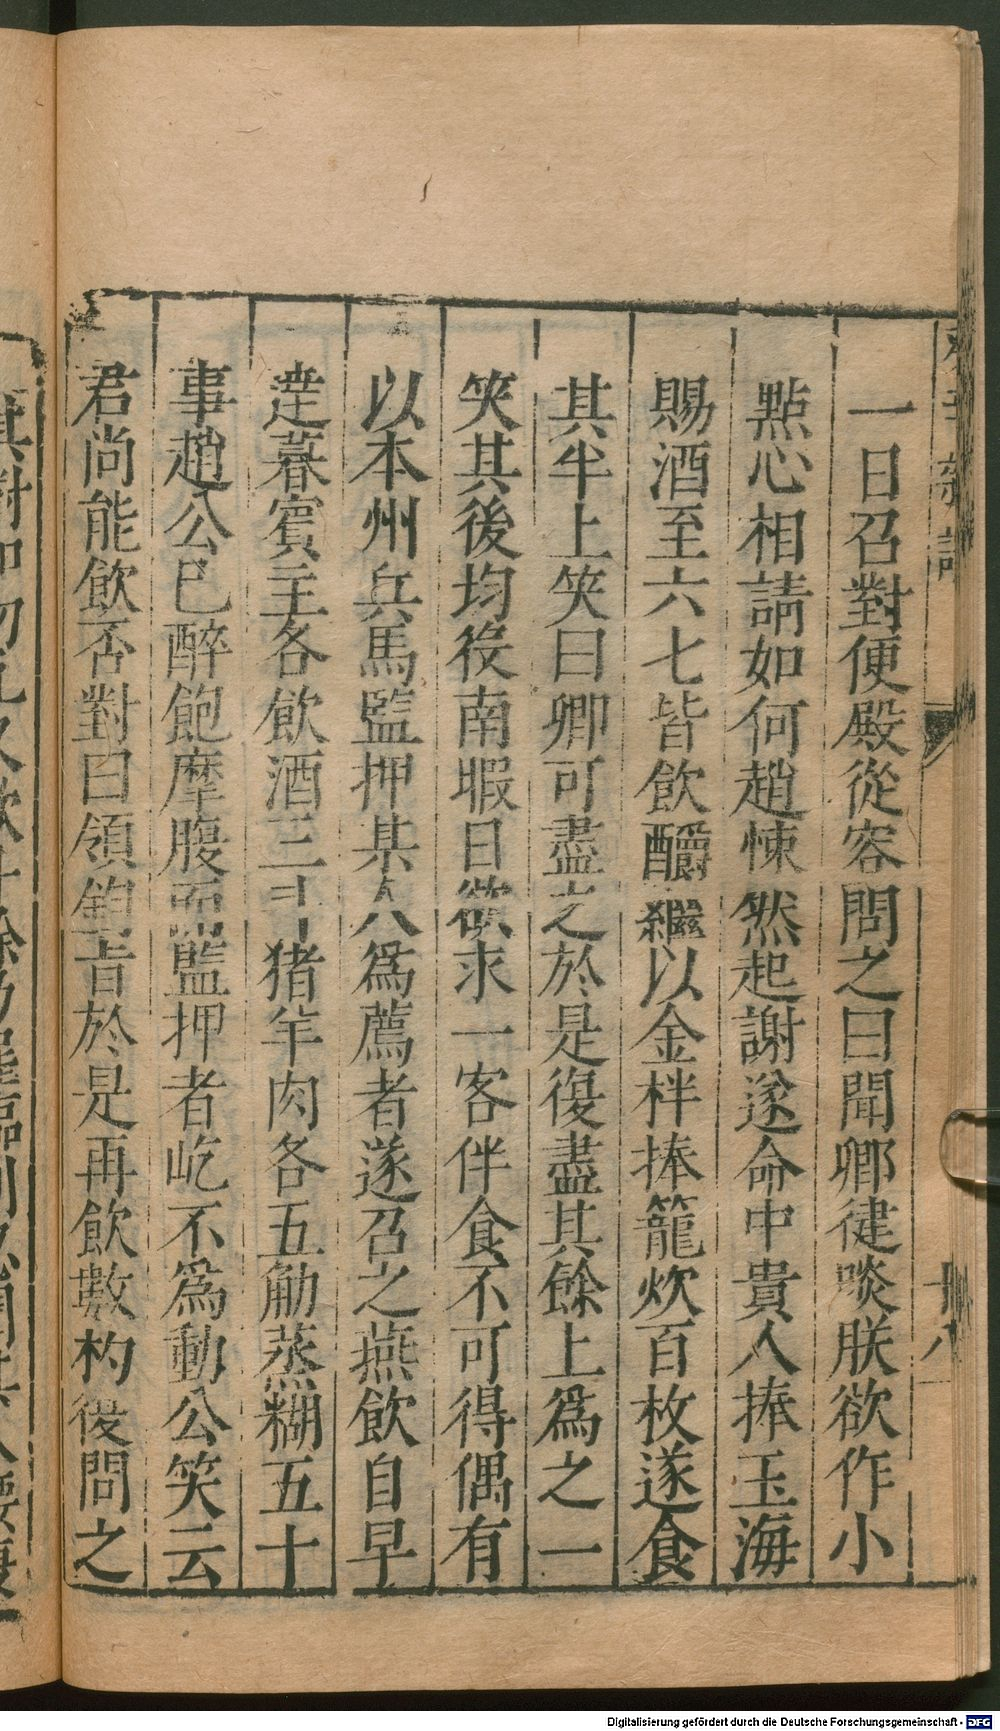 一日召對便殿從容問之曰聞卿健啖朕欲作小
點心相請如何趙悚然起謝遂命中貴人捧玉海
賜酒至六七皆飲釂繼以金柈捧籠炊百枚遂食
其半上笑曰卿可盡之於是復盡其餘上爲之一
笑其後均役南暇日欲求一客伴食不可得偶有
以本州兵馬監押某人爲薦者遂召之燕飲自早
達暮賓主各飲酒三斗猪羊肉各五觔蒸糊五十
事趙公已醉飽摩腹而監押者屹不為動公笑云
君尚能飲否對曰領鈞旨於是再飲數杓復問之
Digitalisierung gefördert durch die Deutsche Forschungsgemeinschaft - DFG